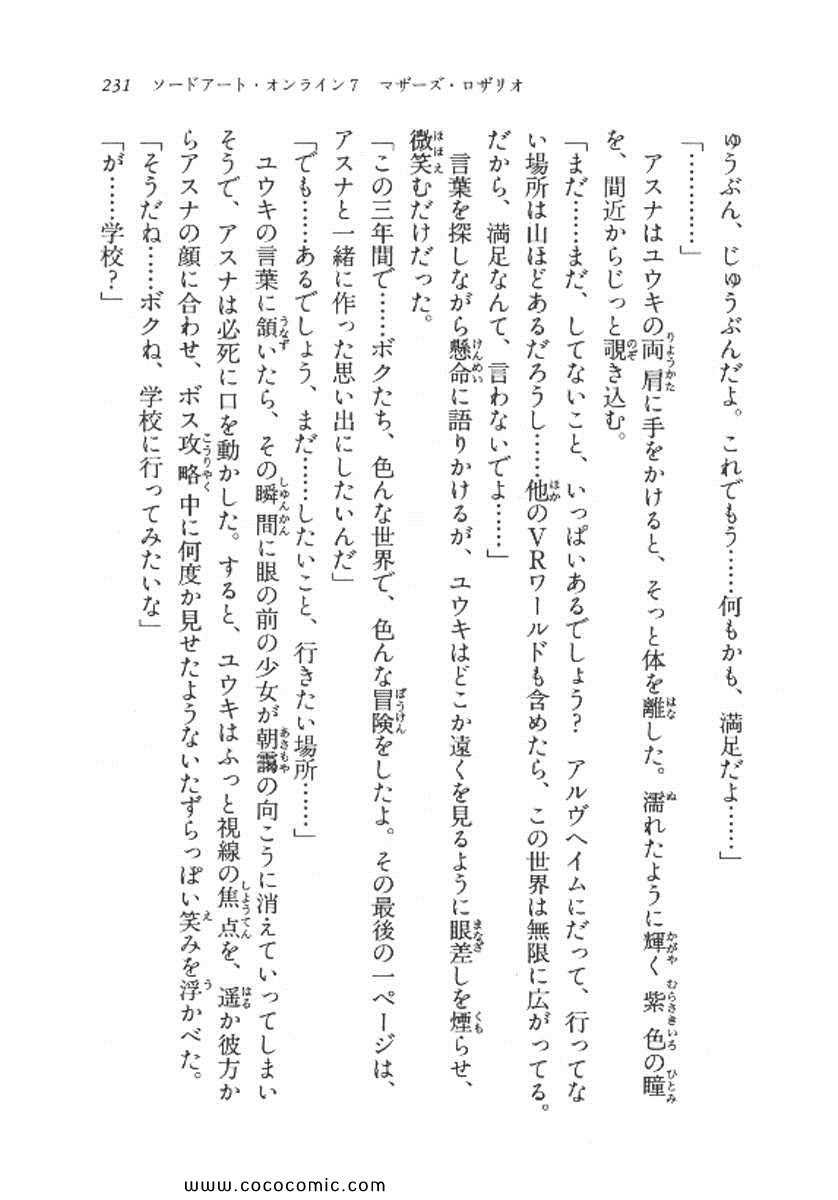 231　ソードアート・オンライン7　マザーズ・ロザリオ
ゅうぶん、じゅうぶんだよ。これでもう……何もかも、満足だよ……」
「…………」
　アスナはユウキの両肩に手をかけると、そっと体を離した。濡れたように輝く紫色の瞳
を、間近からじっと覗き込む。
「まだ……まだ、してないこと、いっぱいあるでしょう？　アルヴヘイムにだって、行ってな
い場所は山ほどあるだろうし……他のVRワールドも含めたら、この世界は無限に広がってる。
だから、満足なんて、言わないでよ……」
　言葉を探しながら懸命に語りかけるが、ユウキはどこか遠くを見るように眼差しを煙らせ、
微笑むだけだった。
「この三年間で……ボクたち、色んな世界で、色んな冒険をしたよ。その最後の一ページは、
アスナと一緒に作った思い出にしたいんだ」
「でも……あるでしょう、まだ……したいこと、行きたい場所……」
　ユウキの言葉に頷いたら、その瞬間に眼の前の少女が朝靄の向こうに消えていってしまい
そうで、アスナは必死に口を動かした。すると、ユウキはふっと視線の焦点を、遥か彼方か
らアスナの顔に合わせ、ボス攻略中に何度か見せたようないたずらっぽい笑みを浮かべた。
「そうだね……ボクね、学校に行ってみたいな」
「が……学校？」
www.cococomic.com